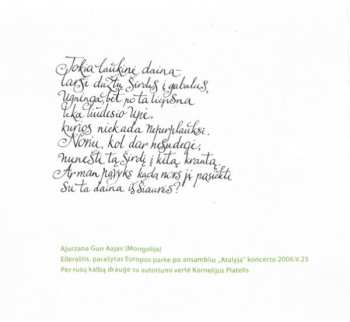 Tokia laukinė daina
tarsi dužtų širdis į gabalus,
Ugninga, bet po ta liepsna
teka liūdesio upė,
kurios niekada neperplauksi.
Noriu, kol dar nesudegė,
nunešti tą širdį į kitą krantą.
Ar man pavyks kada nors jį pasiekti
Su ta daina iš Šiaurės?
Ajurzana Gun Aajav (Mongolija)
Eilėraštis, parašytas Europos parke po ansamblio „Atalyja“ koncerto 2006.V.23
Per rusų kalbą drauge su autoriumi vertė Kornelijus Platelis